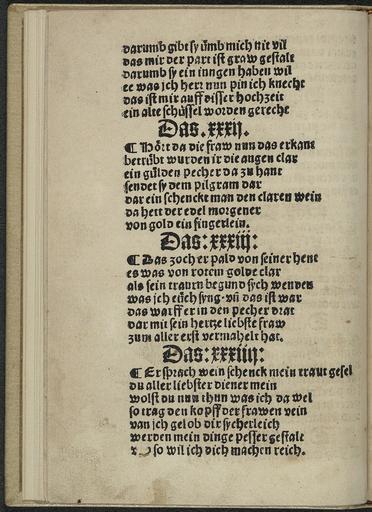 darumb gibt sy ümb mich nit vil
das mir der part ist graw gestalt
darumb sy ein iungen haben wil
ee was ich herr nun pin ich knecht
das ist mir auff disser hochzeit
ein alte schüssel worden gerecht
Das. xxxij.
¶ Hört da die fraw nun das erkant
betrübt wurden ir die augen clar
ein gülden pecher da zu hant
sendet sy dem pilgram dar
dar ein schenckt man den claren wein
da hett der edel morgener
von gold ein fingerlein.
Das: xxxiij:
¶ Das zoch er pald von seiner hent
es was von rotem golde clar
als sein traurn begund sych wenden
was ich eüch syng. vn̄ das ist war
das warff er in den pecher drat
dar mit sein hertze liebste fraw
zum aller erst vermahelt hat.
Das: xxxiiij:
¶ Er sprach wein schenck mein traut gesel
du aller liebster diener mein
wolst du nun thun was ich da wel
so trag den kopff der frawen dein
van ich gelob dir sycherleich
werden mein dinge pesser gestalt
so wil ich dich machen reich.